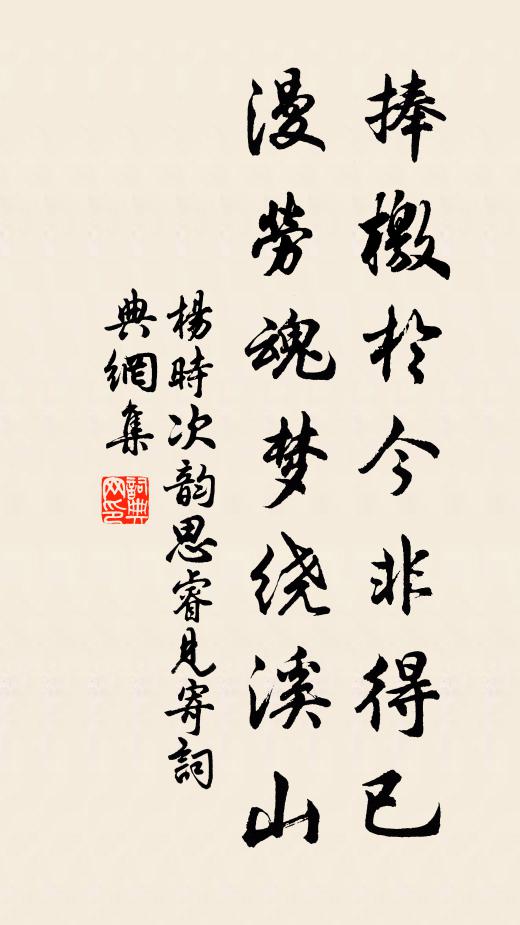 捧檄於今非得已
漫勞魂梦绕溪山
楊時次韵思睿見寄詞
典網集
詞典网印